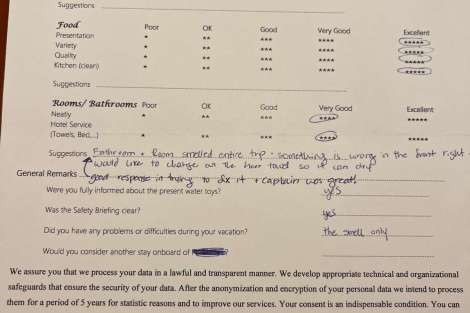 Suggestions
Food Poor OK Good Very Good Excellent
Presentation * ** *** **** *****
Variety * ** *** **** *****
Quality * ** *** **** *****
Kitchen (clean) * ** *** **** *****
Suggestions
Rooms/ Bathrooms Poor OK Good Very Good Excellent
Neatly * ** *** **** *****
Hotel Service
(Towels, Bed,...) * ** *** **** *****
Suggestions Bathroom + Room smelled entire trip - something is wrong in the front right.
would like to change out the hand towel so it can dry
General Remarks good response in trying to fix it + captain was great!
Were you fully informed about the present water toys? yes
Was the Safety Briefing clear? yes
Did you have any problems or difficulties during your vacation? the smell only
Would you consider another stay onboard of ?
We assure you that we process your data in a lawful and transparent manner. We develop appropriate technical and organizational
safeguards that ensure the security of your data. After the anonymization and encryption of your personal data we intend to process
them for a period of 5 years for statistic reasons and to improve our services. Your consent is an indispensable condition. You can